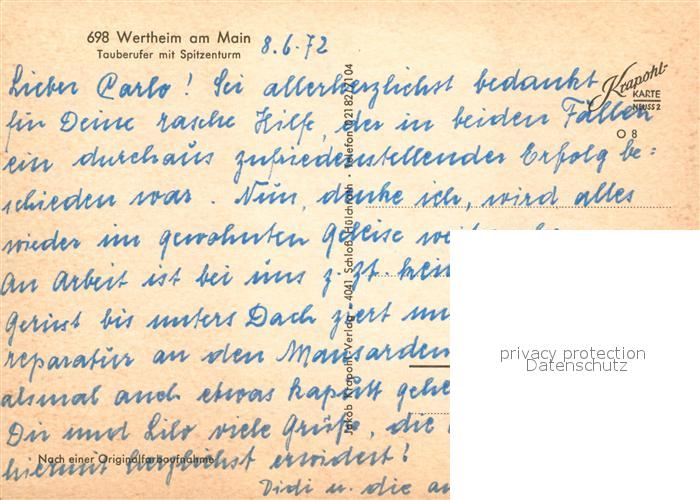 698 Wertheim am Main
Tauberufer mit Spitzenturm
8.6.72
Krapohl-
KARTE
NEUSS 2
O 8
Lieber Carlo! Sei allerherzlichst bedankt
für Deine rasche Hilfe, der in beiden Fällen
ein durchaus zufriedenstellender Erfolg be=
schieden war. Nun, denke ich, wird alles
wieder im gewohnten Geleise
An Arbeit ist bei uns z. Zt. kein
Gerüst bis unters Dach ziert
reparatur an den Mansarden
alsmal auch etwas kaputt
Dir und Lilo viele Grüße, die
hiermit herzlichst erwidert!
Didi u. die
Nach einer Originalfarbaufnahme
Jakob Krapohl-Verlag · 4041 Schloß Hülchrath · Telefon 02182/7104
privacy protection
Datenschutz